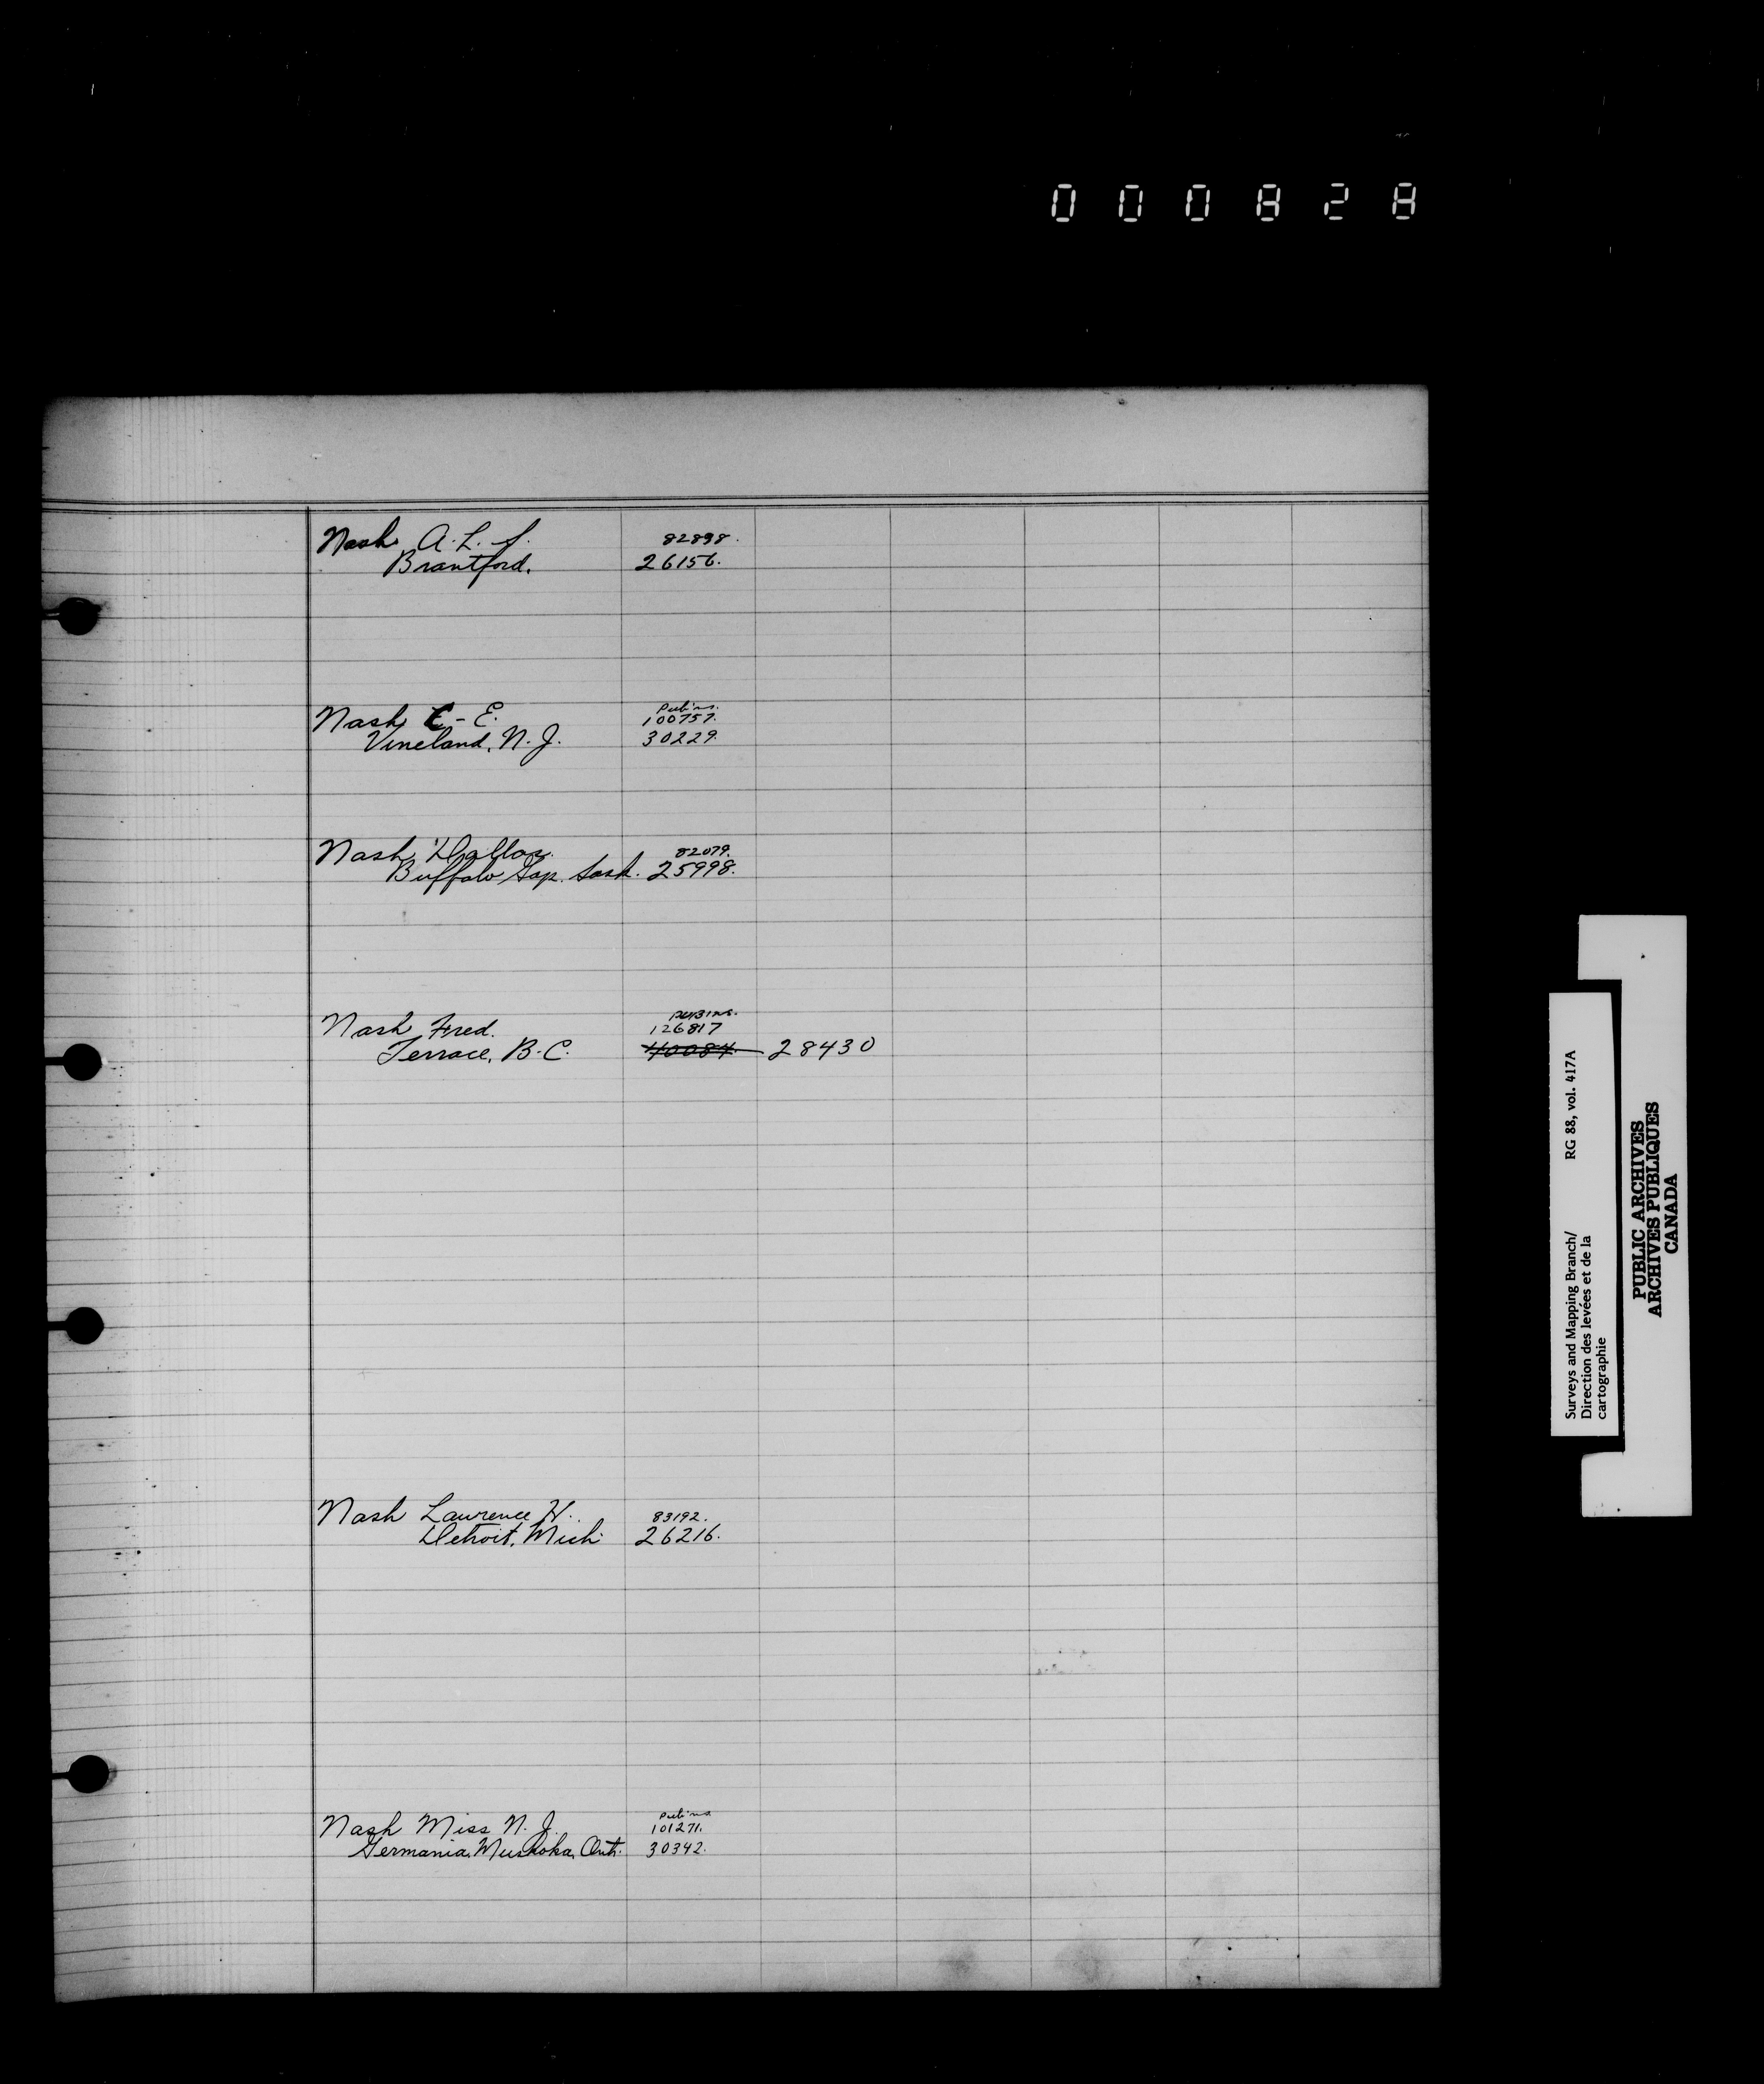 000828
Nash A. L. S. 82898.
Brantford. 26156.
Pubins.
Nash C-E. 100757.
Vineland, N. J. 30229.
Nash Dallas. 82079.
Buffalo Gap. Sask. 25998.
Pubins.
Nash Fred. 126817
Terrace, B.C. 40084. 28430
Nash Lawrence H. 83192.
Detroit, Mich. 26216.
Pubins
Nash Miss N. J. 101271.
Germania, Muskoka, Ont. 30342.
Surveys and Mapping Branch/ RG 88, vol. 417A
Direction des levées et de la
cartographie
PUBLIC ARCHIVES
ARCHIVES PUBLIQUES
CANADA